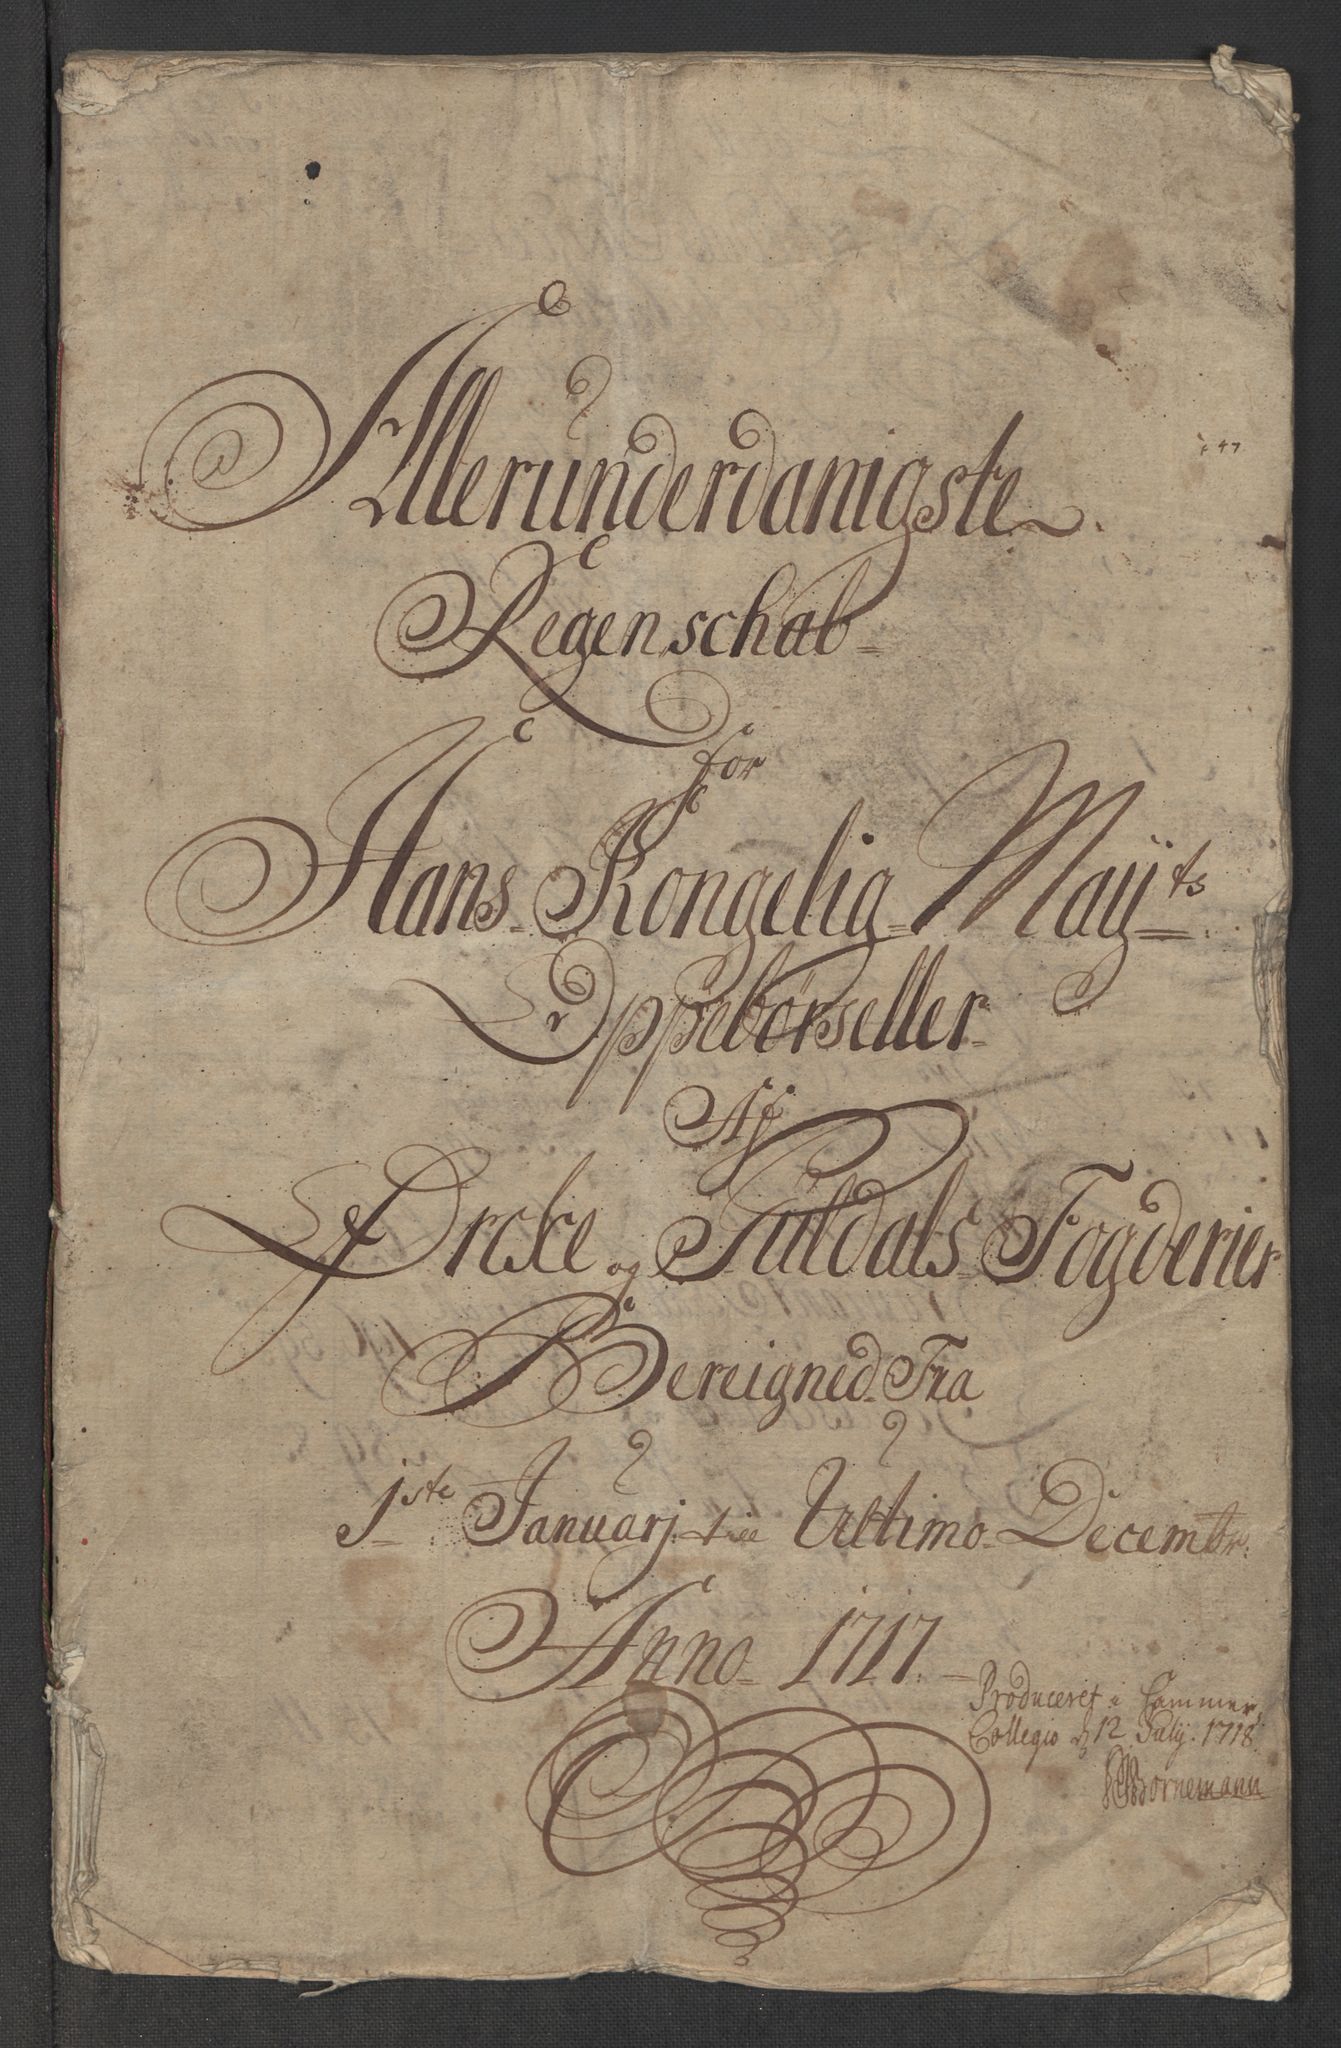 Allerunderdanigste
Regenschab
for
Hans Kongelig Mayts
Oppebørseller
Af
Ørcke og Guldals Fogderier
Bereigned Fra
1ste Januarj till Ultimo Decembr:
Anno 1717.
Produceret i Cammer
Collegio d 12 July. 1718
Bornemann